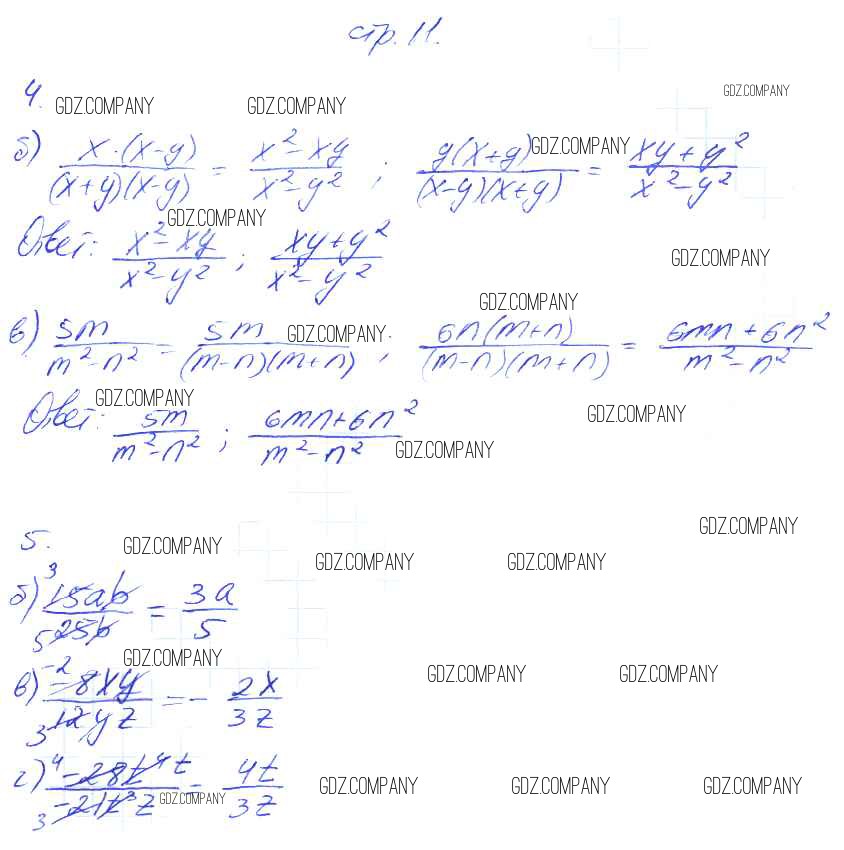 стр. 11.
GDZ.COMPANY
4.
GDZ.COMPANY GDZ.COMPANY
б) x·(x-y)/(x+y)(x-y) = x²-xy/x²-y² ; y(x+y)/(x-y)(x+y) = xy+y²/x²-y²
GDZ.COMPANY
GDZ.COMPANY
Ответ: x²-xy/x²-y² ; xy+y²/x²-y²
GDZ.COMPANY
GDZ.COMPANY
в) 5m/m²-n² = 5m/(m-n)(m+n) ; 6n(m+n)/(m-n)(m+n) = 6mn+6n²/m²-n²
GDZ.COMPANY
GDZ.COMPANY
Ответ: 5m/m²-n² ; 6mn+6n²/m²-n²
GDZ.COMPANY
GDZ.COMPANY
GDZ.COMPANY
5.
GDZ.COMPANY GDZ.COMPANY GDZ.COMPANY
б) 3 15ab/5 25b = 3a/5
GDZ.COMPANY GDZ.COMPANY GDZ.COMPANY
в) -2 -8xy/3 12yz = - 2x/3z
г) 4 -28t⁴ t/3 -21t³z = 4t/3z
GDZ.COMPANY GDZ.COMPANY GDZ.COMPANY GDZ.COMPANY